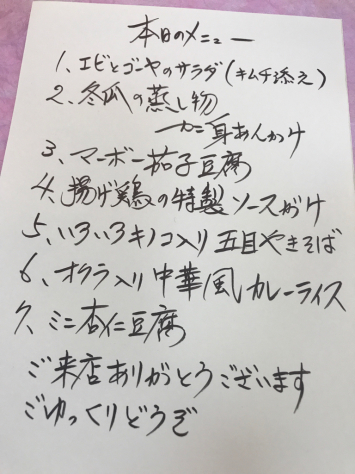 本日のメニュー
1、エビとゴーヤのサラダ(キムチ添え)
2、冬瓜の蒸し物
カニ身あんかけ
3、マーボー茄子豆腐
4、揚げ鶏の特製ソースがけ
5、いろいろキノコ入り五目やきそば
6、オクラ入り中華風カレーライス
7、ミニ杏仁豆腐
ご来店ありがとうございます
ごゆっくりどうぞ